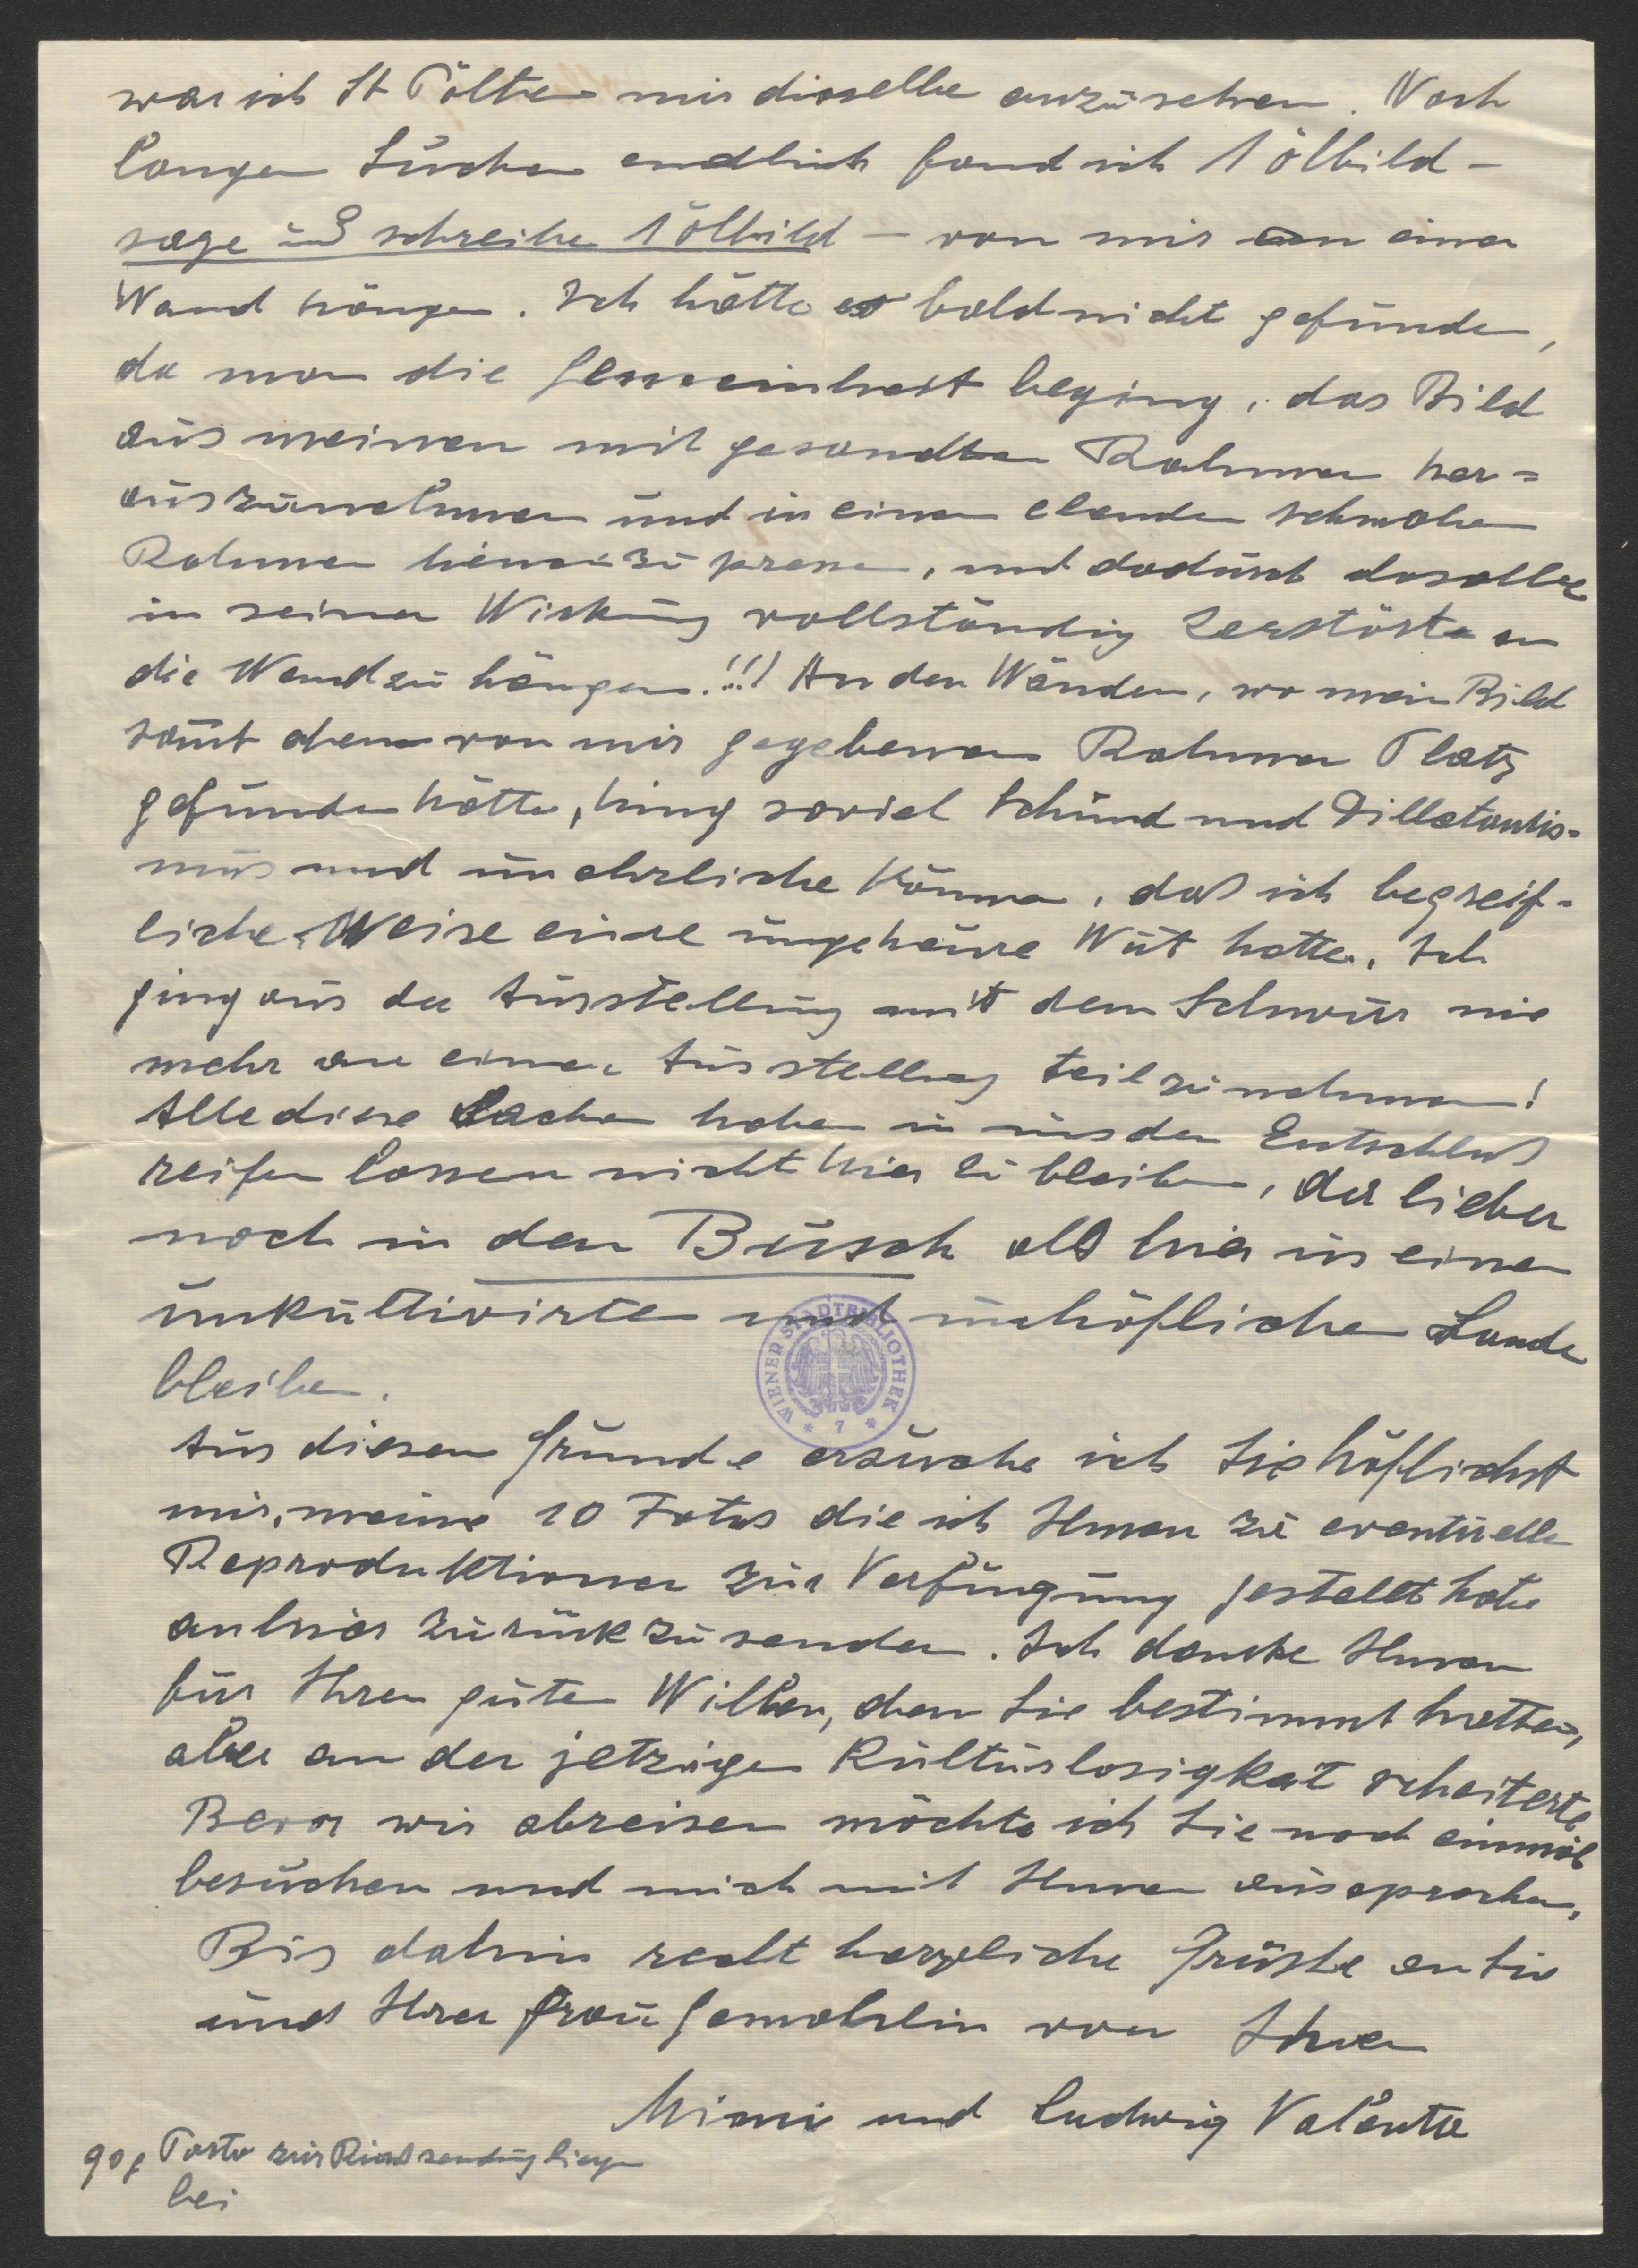 war ich St Pölten mir dieselbe anzusehen. Nach
langen Suchen endlich fand ich 1 Ölbild –
sage und schreibe 1 Ölbild – von mir an einer
Wand hängen. Ich hätte es bald nicht gefunden,
da man die Gemeinheit beging, das Bild
aus meinen mit gesandten Rahmen her=
auszunehmen und in einen elenden schmalen
Rahmen hineinzu pressen, und dadurch dasselbe
in seiner Wirkung vollständig zerstörte an
die Wand zu hängen.!!! An den Wänden, wo mein Bild
samt dem von mir gegebenen Rahmen Platz
gefunden hätte, hing soviel Schund und Dilletantis=
mus und unehrliche Können, daß ich begreif=
licher Weise eine ungeheure Wut hatte. Ich
ging aus der Ausstellung mit dem Schwur nie
mehr an einer Ausstellung teilzunehmen!
Alle diese Sachen haben in uns den Entschluß
reifen lassen nicht hier zu bleiben, der lieber
noch in den Busch als hier in einen
unkultivirten und unhöflichen Lande
bleiben.
Aus diesen Grunde ersuche ich Sie höflichst
mir, meine 10 Fotos die ich Ihnen zu eventuelle
Reproduktionen zur Verfügung gestellt habe
anhier zurückzusenden. Ich danke Ihnen
für Ihren guten Willen, den Sie bestimmt hatten,
aber an der jetzigen Kulturlosigkeit scheiterte.
Bevor wir abreisen möchte ich Sie noch einmal
besuchen und mich mit Ihnen aussprechen.
Bis dahin recht herzliche Grüße an Sie
und Ihrer Frau Gemahlin von Ihren
Mimi und Ludwig Valenta
90g Porto zur Rücksendung liegen
bei
WIENER STADTBIBLIOTHEK
* 7 *